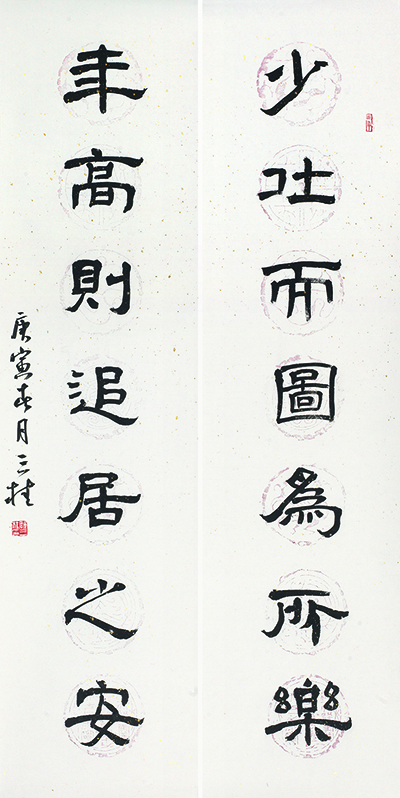 少壯而圖為所樂
年高則追居之安
庚寅春月三桂